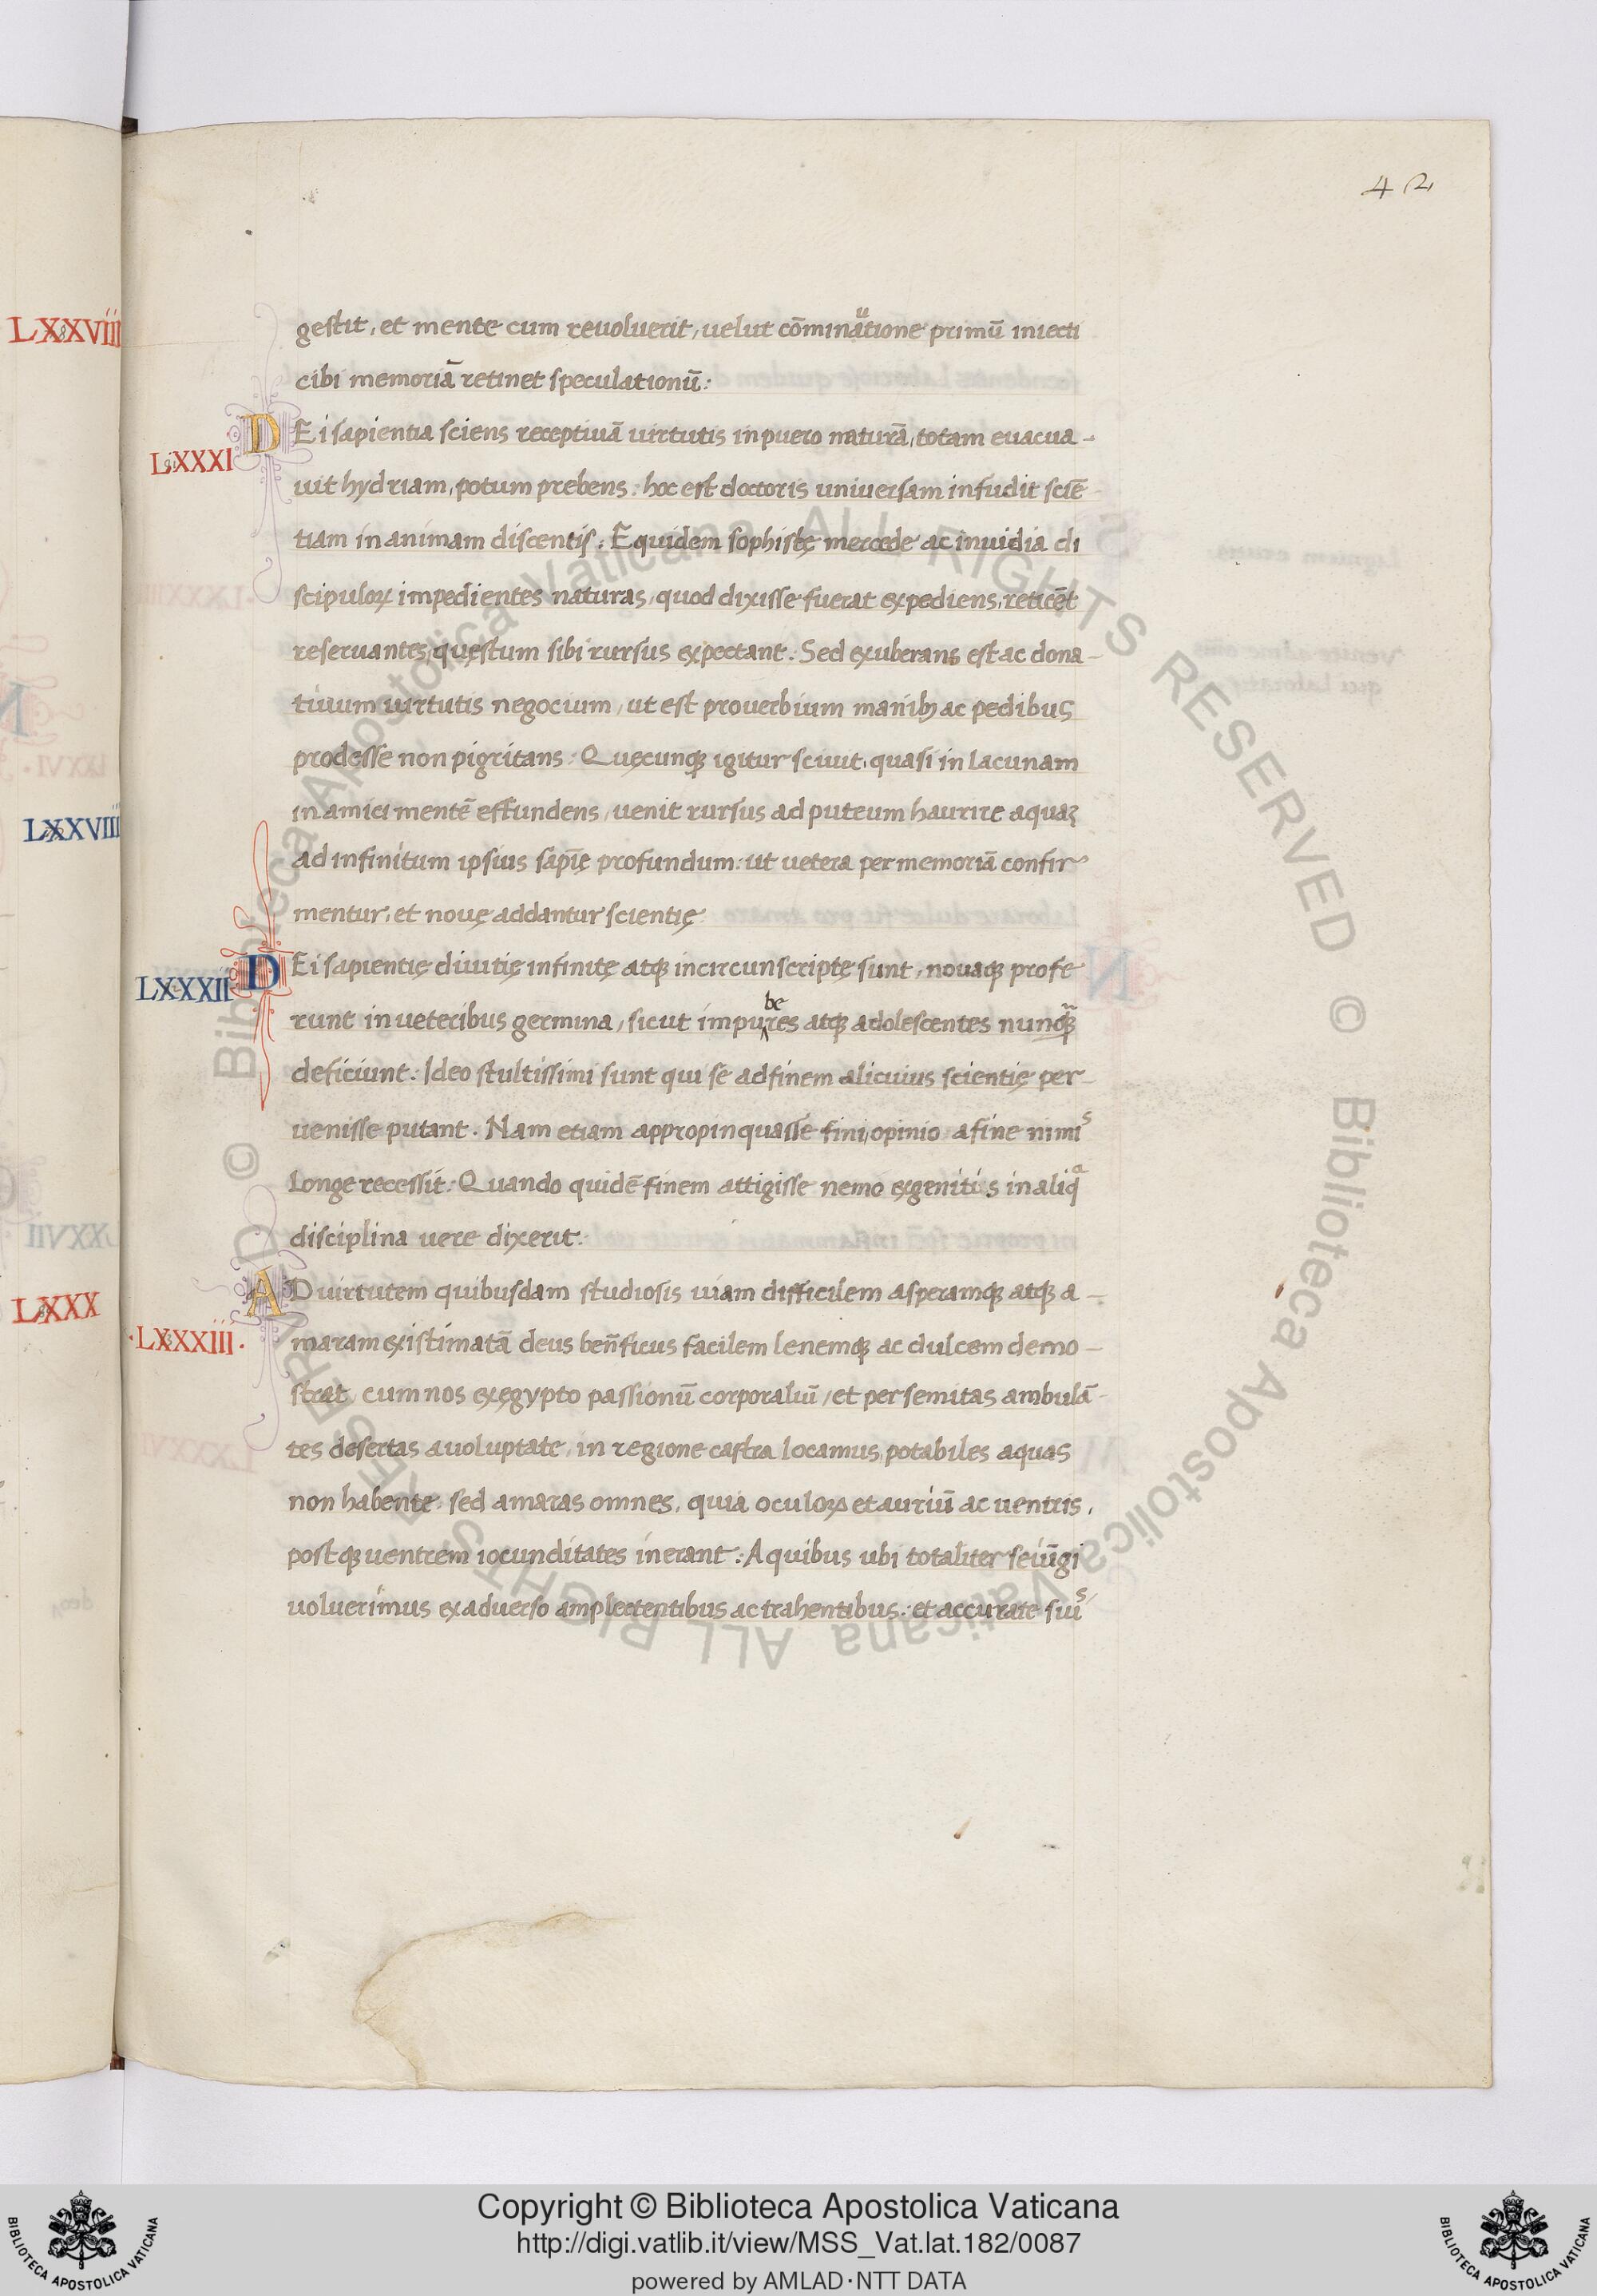 42
gestit, et mente cum reuoluerit, uelut cōminautione primū iniecti
cibi memoriā retinet speculationū:
LXXXI
DEi sapientia sciens receptiuā uirtutis in puero naturā, totam euacua-
uit hydriam, potum prebens: hoc est doctoris uniuersam infudit sciē-
tiam in animam discentis: Equidem sophistę mercede ac inuidia di
scipuloꝝ impedientes naturas, quod dixisse fuerat expediens, reticēt
reseruantes, quęstum sibi rursus expectant: Sed exuberans est ac dona-
tiuum uirtutis negocium, ut est prouerbium manibꝫ ac pedibus
prodesse non pigritans: Quęcunqꝫ igitur sciuit, quasi in lacunam
in amici mentē effundens, uenit rursus ad puteum haurire aquas
ad infinitum ipsius sapīę profundum: ut uetera per memoriā confir
mentur, et nouę addantur scientię:
LXXXII
DEi sapientię diuitię infinitę atqꝫ incircunscriptę sunt, nouaqꝫ profe
runt in ueteribus germina, sicut impuberes atqꝫ adolescentes nunqꝫ̃
deficiunt: Ideo stultissimi sunt qui se ad finem alicuius scientię per-
uenisse putant. Nam etiam appropinquasse fini, opinio a fine nimis
longe recessit: Quando quidē finem attigisse nemo ex genitis in aliqᵃ
disciplina uere dixerit:
·LXXXIII·
AD uirtutem quibusdam studiosis uiam difficilem asperamqꝫ atqꝫ a-
maram existimatā deus ben̄ficus facilem lenemqꝫ ac dulcem demo-
strat, cum nos ex ęgypto passionū corporaliū, et per semitas ambulā-
tes desertas a uoluptate, in regione castra locamus, potabiles aquas
non habente, sed amaras omnes, quia oculoꝝ et auriū ac uentris,
postqꝫ uentrem iocunditates inerant: A quibus ubi totaliter seiūgi
uoluerimus ex aduerso amplectentibus ac trahentibus: et accurate suis
LXXVIII
LXXVIIII
LXXX
Copyright © Biblioteca Apostolica Vaticana
http://digi.vatlib.it/view/MSS_Vat.lat.182/0087
powered by AMLAD·NTT DATA
BIBLIOTECA APOSTOLICA VATICANA
BIBLIOTECA APOSTOLICA VATICANA
© Biblioteca Apostolica Vaticana ALL RIGHTS RESERVED © Biblioteca Apostolica Vaticana ALL RIGHTS RESERVED